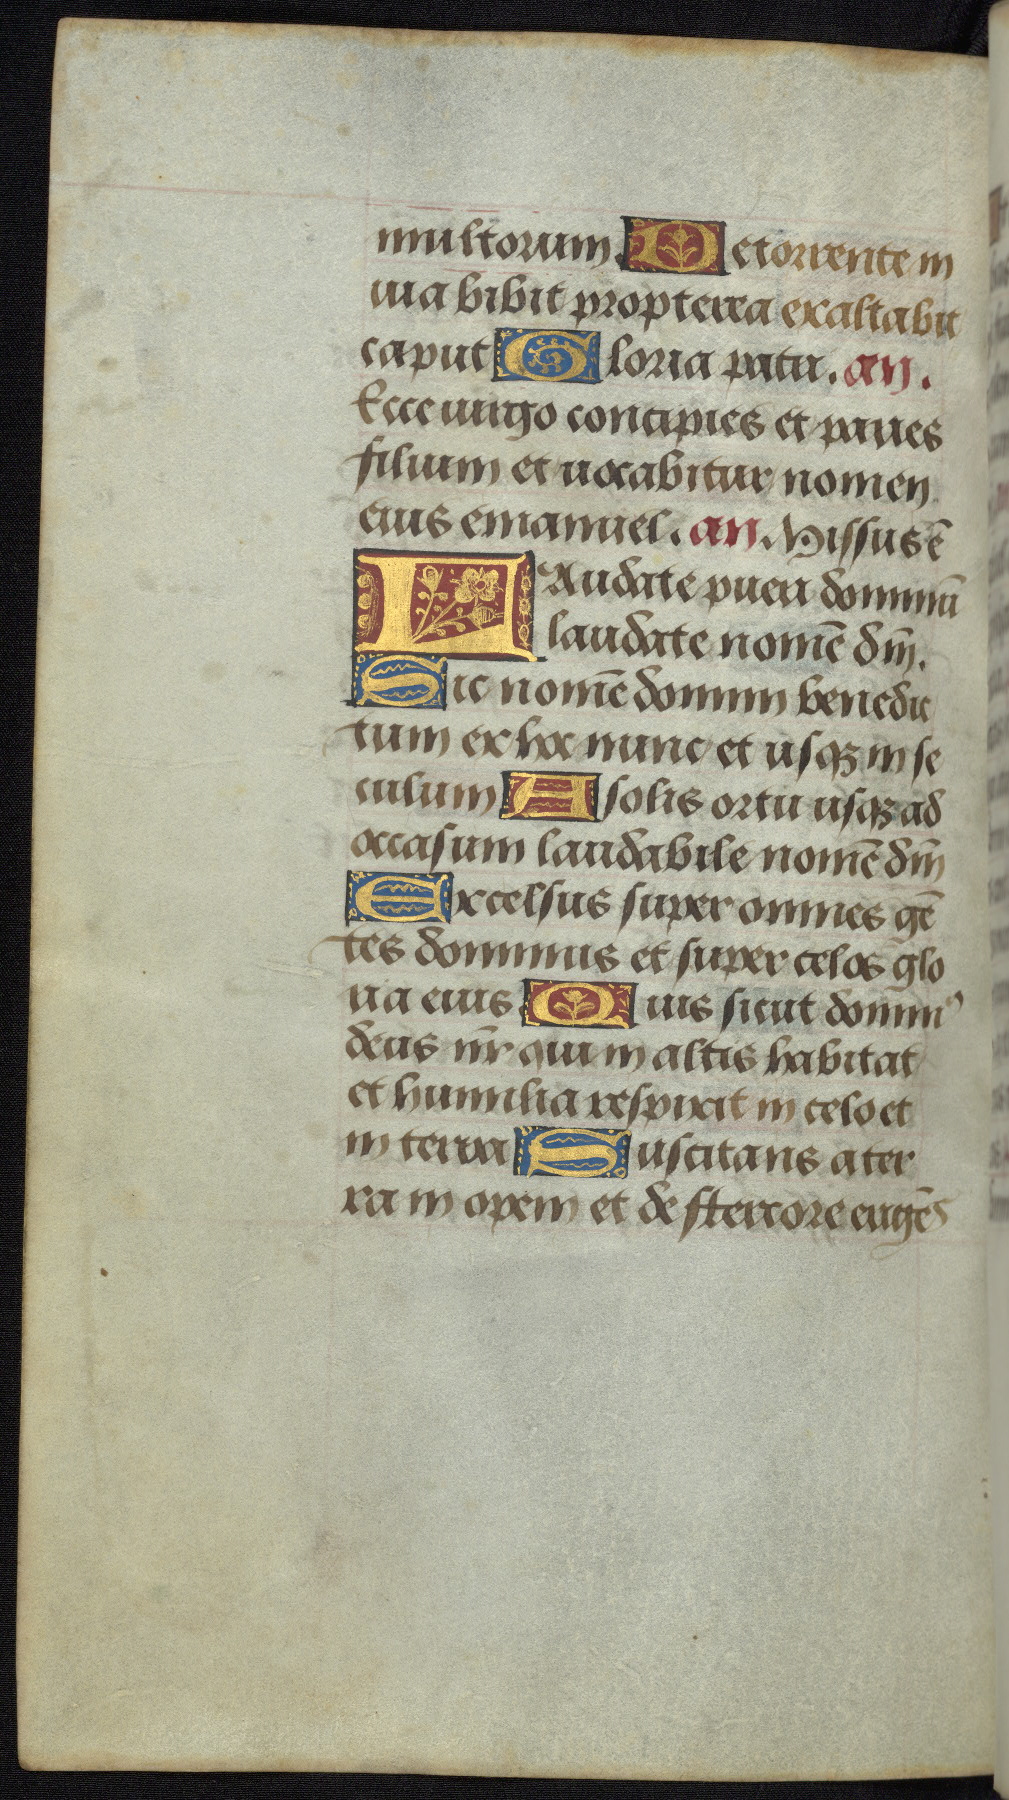 multorum. De torrente in
via bibit propterea exaltabit
caput Gloria patri. an.
Ecce virgo concipies et paries
filium et vocabitur nomen
eius emanuel. an. Missus ē
LAudate pueri dominū
laudate nomē dñi.
Sit nomē domini benedic
tum ex hoc nunc et usqꝫ in se
culum A solis ortu usqꝫ ad
occasum laudabile nomē dñi
Excelsus super omnes gē
tes dominus et super celos glo
ria eius Quis sicut dominꝰ
deus nr̄ qui in altis habitat
et humilia respicit in celo et
in terra Suscitans a ter
ra in opem et de stercore erigēs